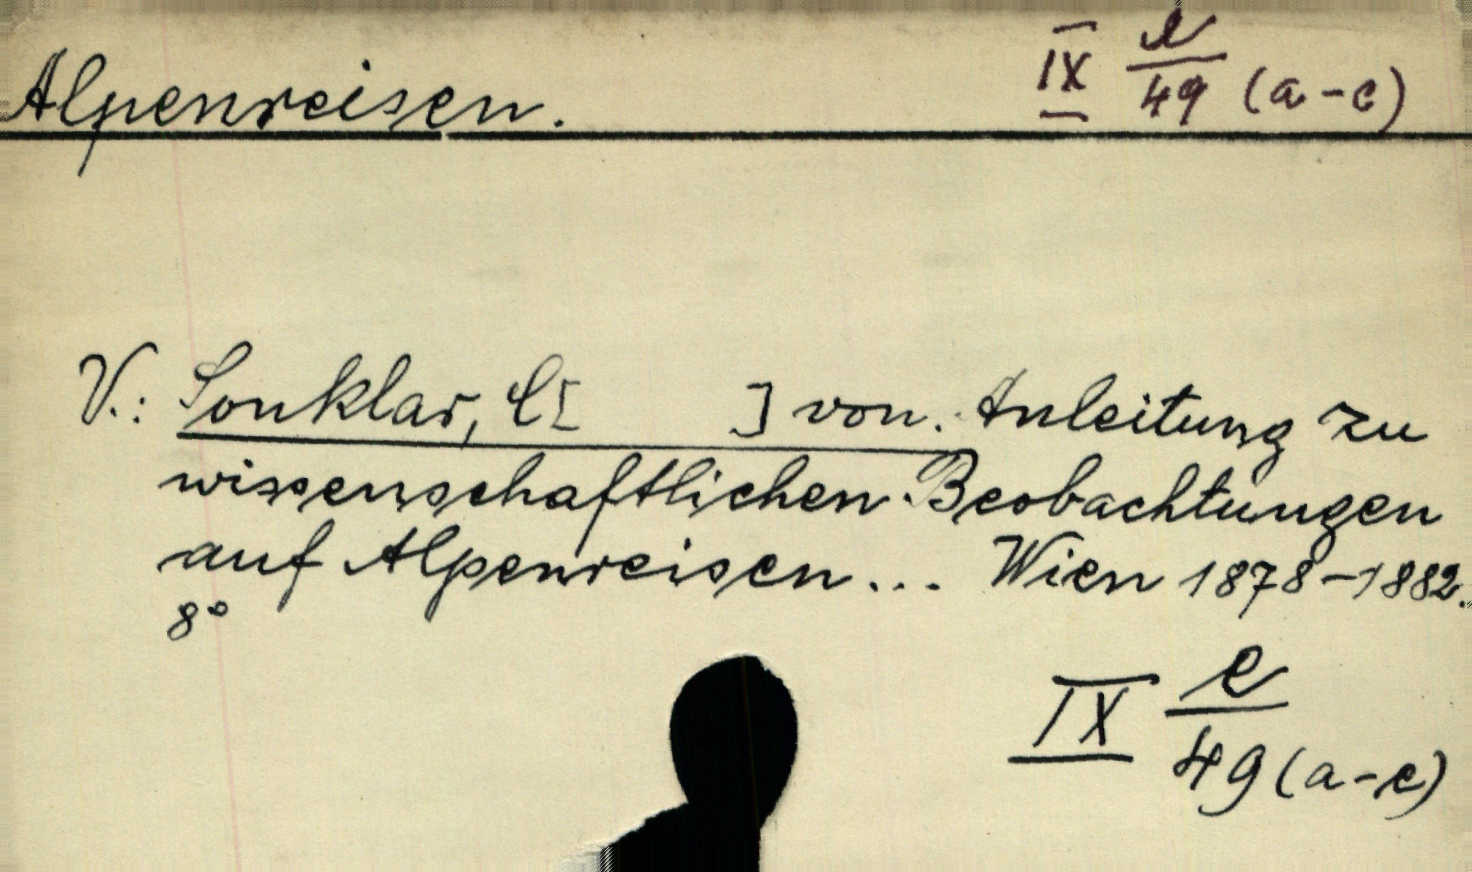 Alpenreisen. IX e/49 (a-c)
V.: Sonklar, C[ ] von. Anleitung zu
wissenschaftlichen Beobachtungen
auf Alpenreisen... Wien 1878-1882.
8°
IX e/49 (a-c)